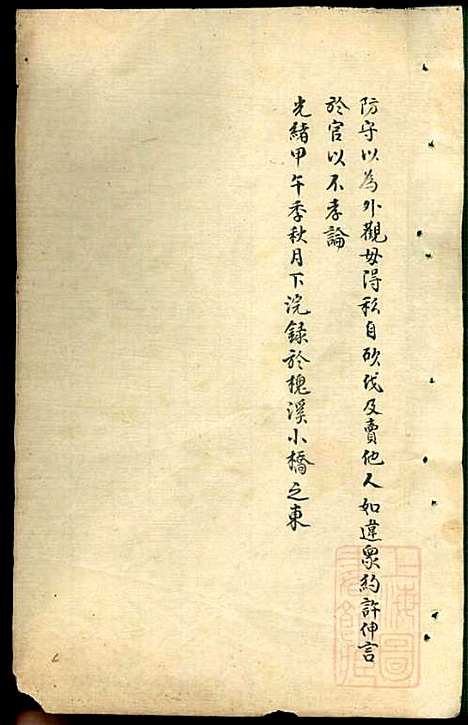 防守以為外觀毋得私自砍伐及賣他人如違眾約許伸言
於官以不孝論
光緒甲午季秋月下浣錄於槐溪小橋之東